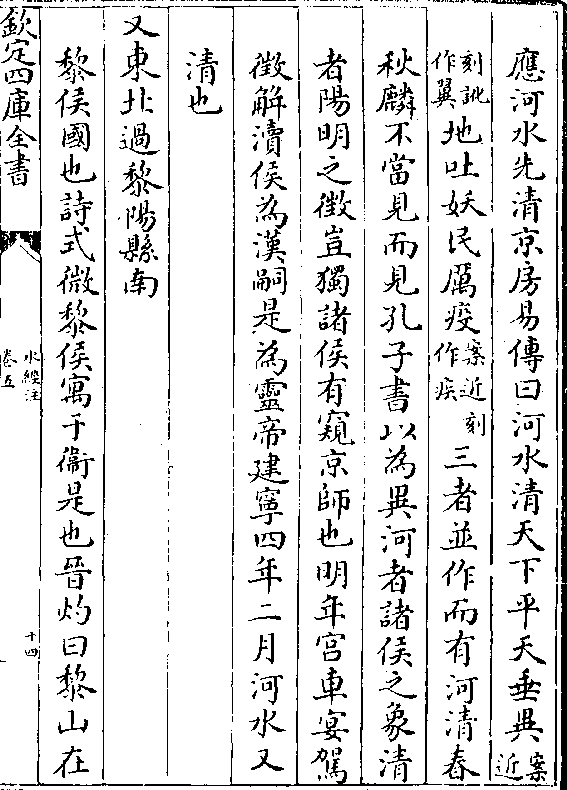 應河水先清京房易傳曰河水清天下平天垂異案近
刻訛作翼地吐妖民厲疫案近刻作疾三者並作而有河清春
秋麟不當見而見孔子書以為異河者諸侯之象清
者陽明之徴豈獨諸侯有窺京師也明年宫車宴駕
徴解瀆侯為漢嗣是為靈帝建寧四年二月河水又
清也
又東北過黎陽縣南
黎侯國也詩式微黎侯寓于衞是也晉灼曰黎山在
欽定四庫全書
水經注
卷五
十四